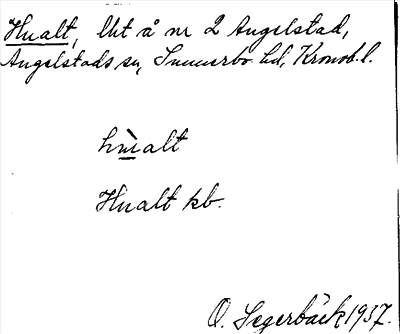 Hualt, lht å nr 2 Angelstad,
Angelstads sn, Sunnerbo hd, Kronob. l.
Hualt kb.
O. Segerbäck 1937.